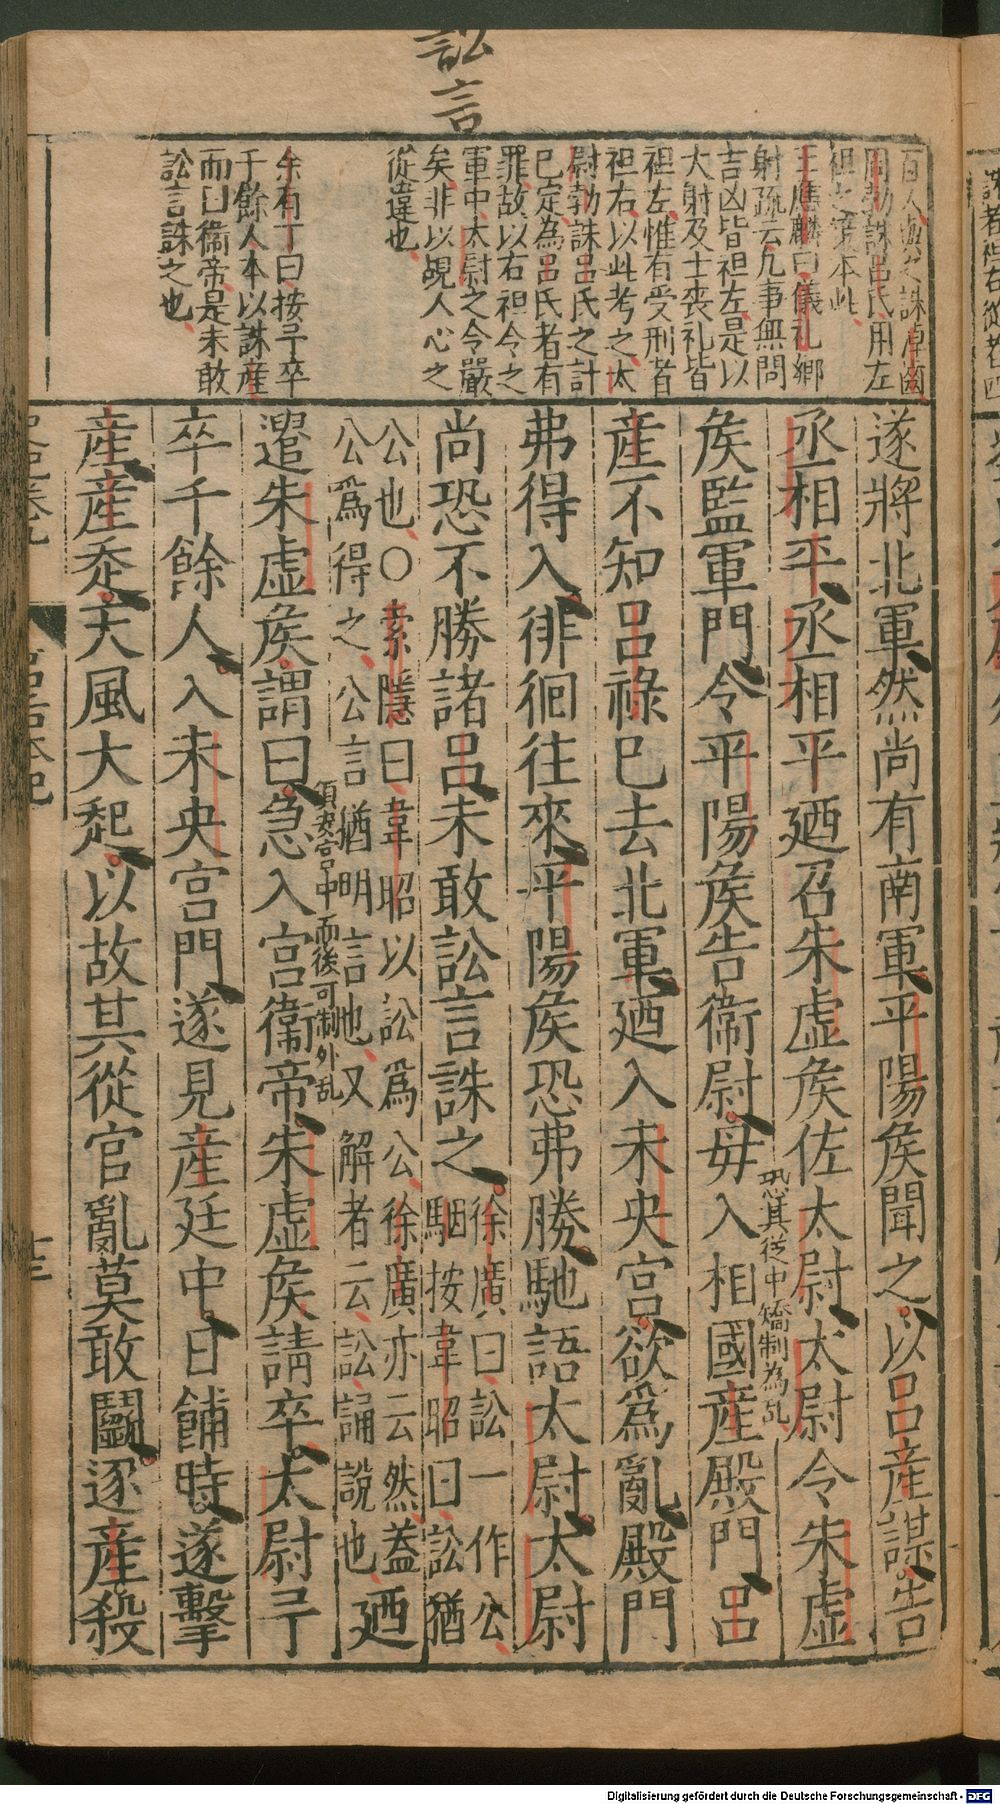 訟言
周勃誅呂氏用左
袒之
王應麟曰儀礼鄉
射疏云凡事無問
吉凶皆袒左是以
大射及士喪礼皆
袒左惟有受刑者
袒右以此考之太
尉勃誅呂氏之計
已定為呂氏者有
罪故以右袒令之
軍中太尉之令嚴
矣非以覘人心之
從違也
余有丁曰按予卒
千餘人本以誅産
而曰衞帝是未敢
訟言誅之也
遂將北軍然尚有南軍平陽矦聞之以呂産謀告
丞相平丞相平廼召朱虛矦佐太尉太尉令朱虛
矦監軍門令平陽矦告衞尉毋入相國産殿門呂
恐其從中矯制為乱
産不知呂祿已去北軍廼入未央宮欲爲亂殿門
弗得入徘徊往來平陽矦恐弗勝馳語太尉太尉
尚恐不勝諸呂未敢訟言誅之
徐廣曰訟一作公
駰按韋昭曰訟猶
公也○索隱曰韋昭以訟爲公徐廣亦云然葢
公爲得之公言猶明言也又解者云訟誦說也
廼
遣朱虛矦謂曰急入宮衞帝朱虛矦請卒太尉予
而後可制外乱
卒千餘人入未央宮門遂見産廷中日餔時遂擊
産産走天風大起以故其從官亂莫敢鬭逐産殺
Digitalisierung gefördert durch die Deutsche Forschungsgemeinschaft - DFG